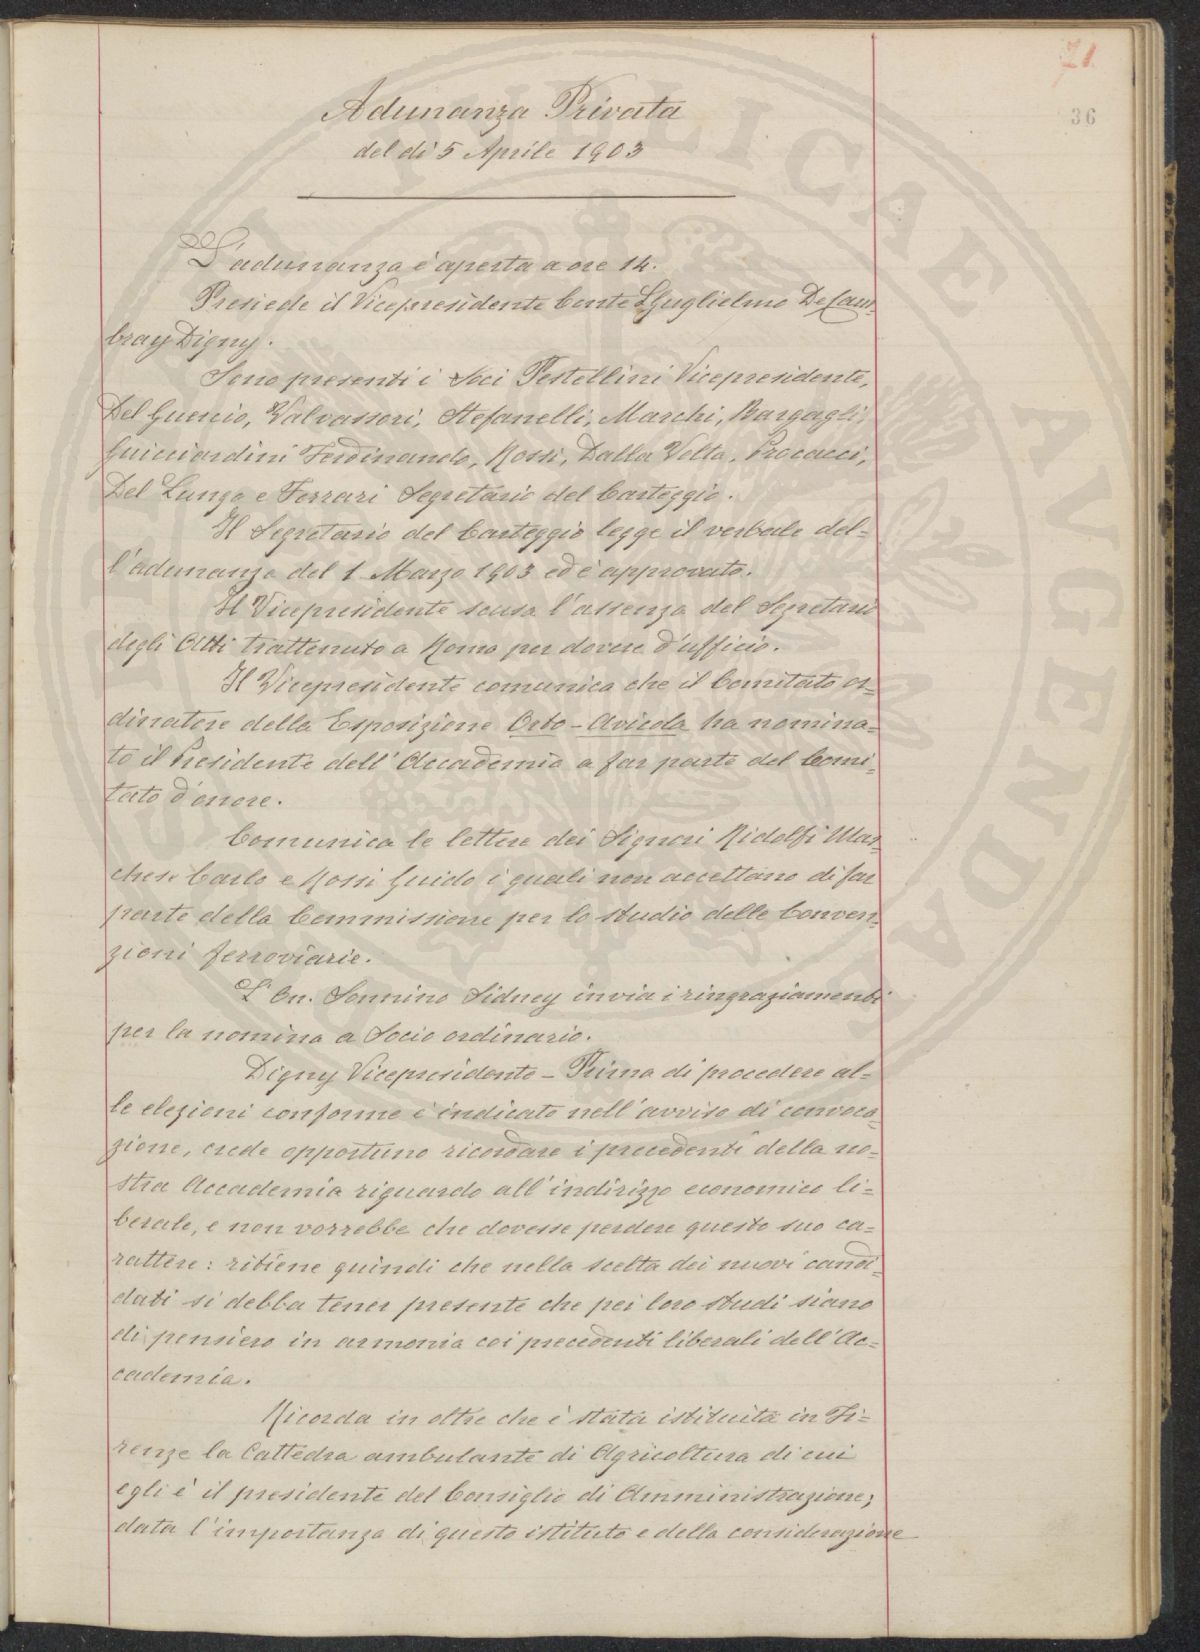 71
36
Adunanza Privata
del dì 5 Aprile 1903
L'adunanza è aperta a ore 14.
Presiede il Vicepresidente Conte Guglielmo De Cam-
bray Digny.
Sono presenti i Soci Pestellini Vicepresidente,
Del Guercio, Valvassori, Stefanelli, Marchi, Bargagli,
Guicciardini Ferdinando, Rossi, Dalla Volta, Procacci,
Del Lungo e Ferrari Segretario del Carteggio.
Il Segretario del Carteggio legge il verbale del=
l'adunanza del 1 Marzo 1903 ed è approvato.
Il Vicepresidente scusa l'assenza del Segretario
degli Atti trattenuto a Roma per dovere d'ufficio.
Il Vicepresidente comunica che il Comitato or=
dinatore della Esposizione Orto-Avicola ha nomina=
to il Presidente dell'Accademia a far parte del Comi=
tato d'onore.
Comunica le lettere dei Signori Ridolfi Mar=
chese Carlo e Rossi Guido i quali non accettano di far
parte della Commissione per lo studio delle Conven=
zioni ferroviarie.
L'On. Sonnino Sidney invia i ringraziamenti
per la nomina a Socio ordinario.
Digny Vicepresidente - Prima di procedere al=
le elezioni conforme è indicato nell'avviso di convoca=
zione, crede opportuno ricordare i precedenti della no=
stra Accademia riguardo all'indirizzo economico li=
berale, e non vorrebbe che dovesse perdere questo suo ca=
rattere: ritiene quindi che nella scelta dei nuovi candi=
dati si debba tener presente che pei loro studi siano
di pensiero in armonia coi precedenti liberali dell'Ac=
cademia.
Ricorda in oltre che è stata istituita in Fi=
renze la Cattedra ambulante di Agricoltura di cui
egli è il presidente del Consiglio di Amministrazione;
data l'importanza di questo istituto e della considerazione
PUBLICAE
AUGENDAE